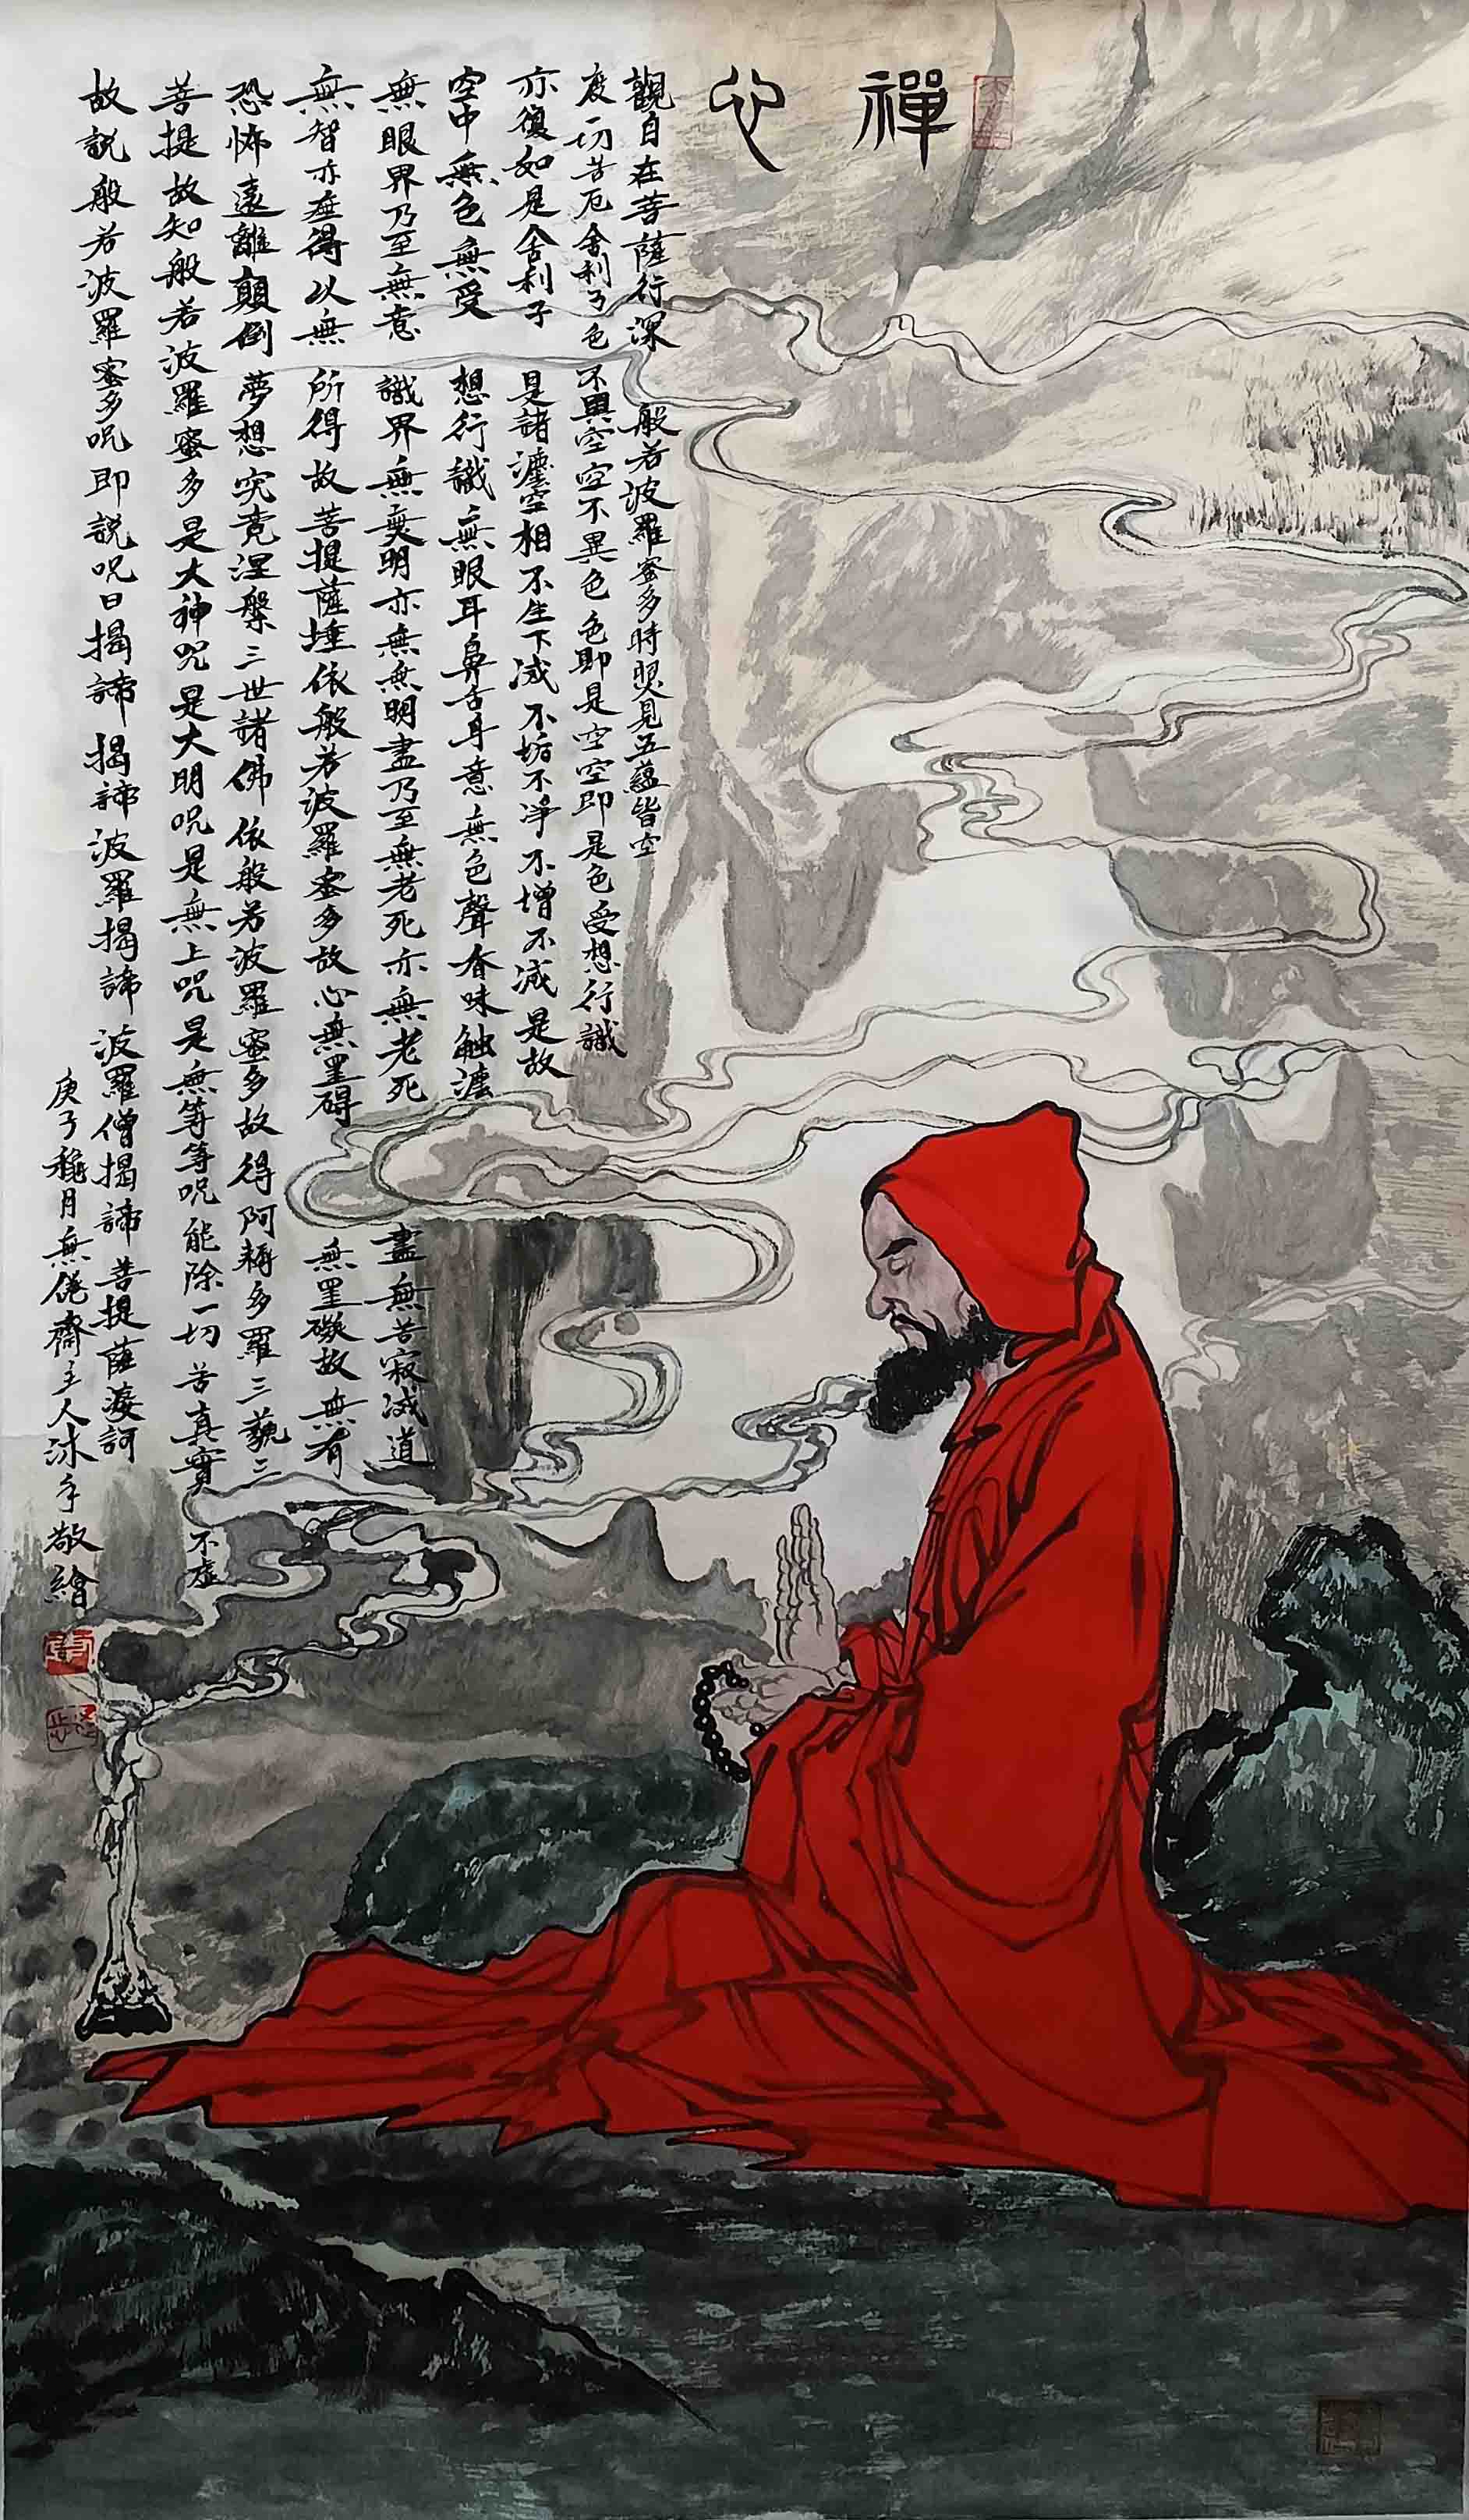 禪心
觀自在菩薩行深般若波羅蜜多時照見五蘊皆空
度一切苦厄舍利子色不異空空不異色色即是空空即是色受想行識
亦復如是舍利子是諸法空相不生不滅不垢不淨不增不減是故
空中無色無受想行識無眼耳鼻舌身意無色聲香味觸法
無眼界乃至無意識界無無明亦無無明盡乃至無老死亦無老死盡無苦寂滅道
無智亦無得以無所得故菩提薩埵依般若波羅蜜多故心無罣碍無罣礙故無有
恐怖遠離顛倒夢想究竟涅槃三世諸佛依般若波羅蜜多故得阿耨多羅三藐三
菩提故知般若波羅蜜多是大神咒是大明咒是無上咒是無等等咒能除一切苦真實不虛
故說般若波羅蜜多呪即說呪曰揭諦揭諦波羅揭諦波羅僧揭諦菩提薩婆訶
庚子穐月無倦齋主人沐手敬繪